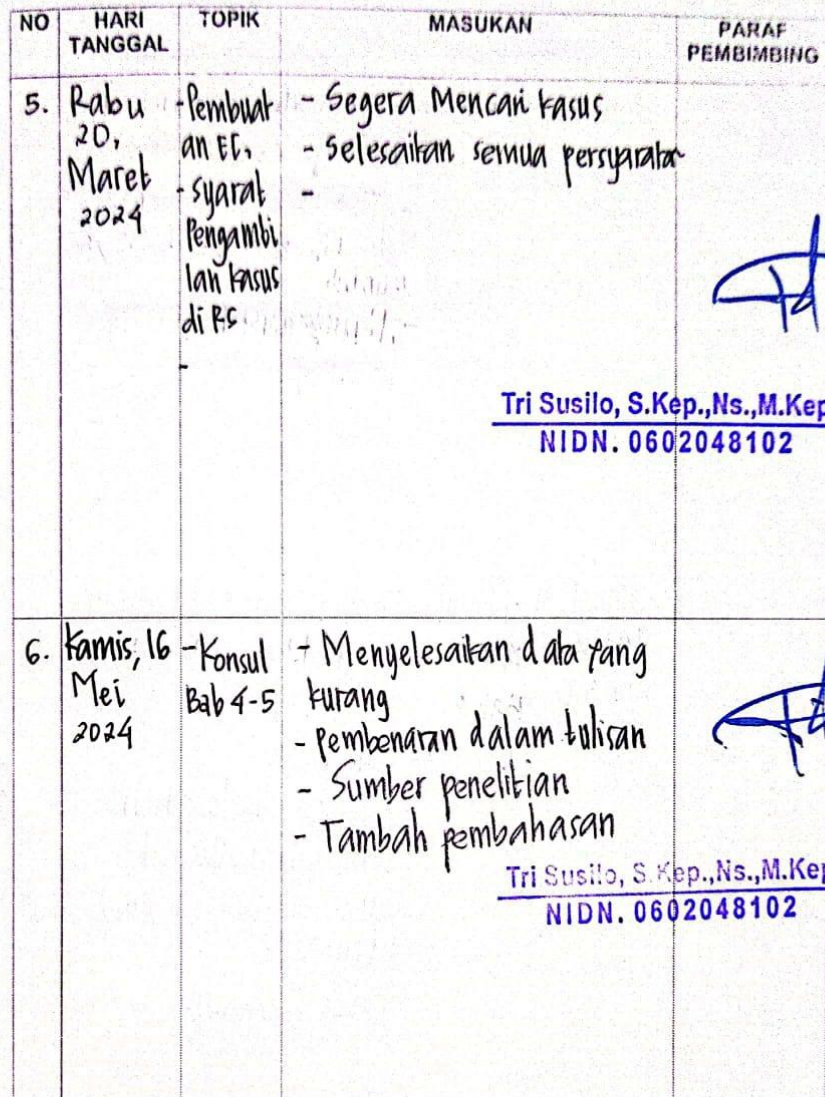 NO HARI TANGGAL TOPIK MASUKAN PARAF PEMBIMBING
5. Rabu
20,
Maret
2024
-Pembuat
an EC,
- syarat
Pengambi
lan kasus
di RS
-
- Segera Mencari kasus
- Selesaikan semua persyaratan
-
Tri Susilo, S.Kep.,Ns.,M.Kep
NIDN. 0602048102
6. Kamis, 16
Mei
2024
-Konsul
Bab 4-5
- Menyelesaikan data yang
kurang
- Pembenaran dalam tulisan
- Sumber penelitian
- Tambah pembahasan
Tri Susilo, S.Kep.,Ns.,M.Kep
NIDN. 0602048102